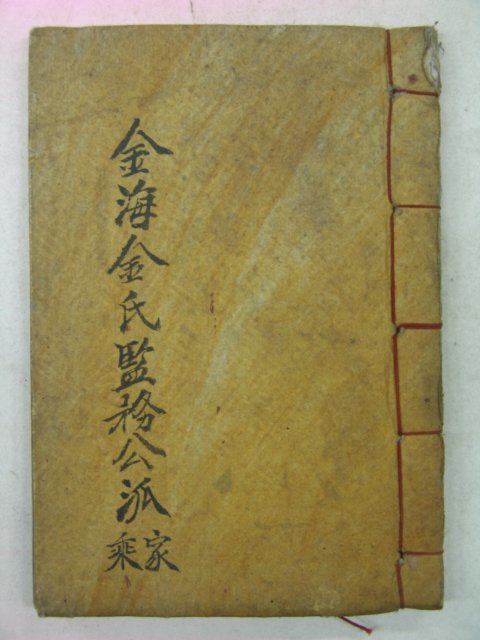 金海金氏監務公派
家乘